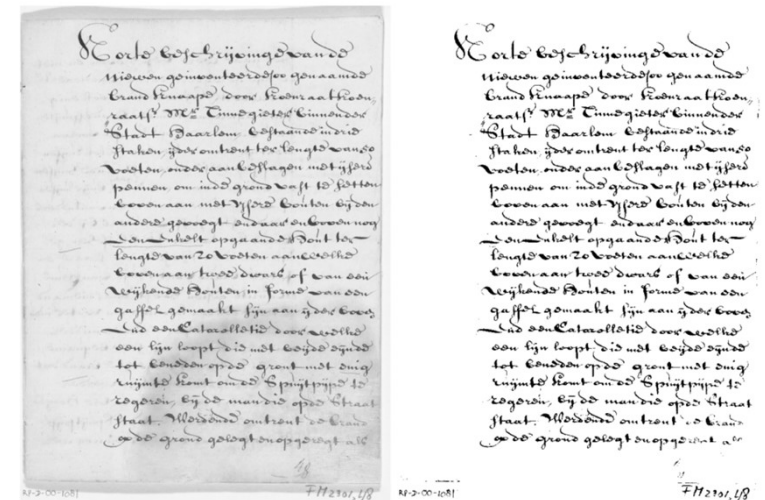 Korte beschrijvinge van de
nieuwen geinventeerde soo genaamde
brand knaape, door Koenraat Koen-
raatsz Mr Tinnegieter binnen der
Stadt Haarlem bestaande in drie
staken, yder omtrent ter lengte van 20
voeten, onder aan beslagen met ijsere
pennen om inde grond vast te setten
boven aan met ijsere bouten by den
andere gevoegt en daar en boven nog
Een Enkelt opgaande Hout ter
lengte van 20 voeten aan welke
boven aan twee dwars, of van een
wijkende Houten, in forme van een
gaffel gemaakt sijn aan yder boven
End een Catarolletie door welke
een lijn loopt die met beyde eynde
tot beneden op de gront met enig
ruijmte komt om de Spuytpype te
regeren, by de man die op de Straat
staat. Werdende omtrent de brand
op de grond gelegt en opgeregt als
48
RP-D-00-1081
FM2901,4/8
Korte beschrijvinge van de
nieuwen geinventeerde soo genaamde
brand knaape, door Koenraat Koen-
raatsz Mr Tinnegieter binnen der
Stadt Haarlem bestaande in drie
staken, yder omtrent ter lengte van 20
voeten, onder aan beslagen met ijsere
pennen om inde grond vast te setten
boven aan met ijsere bouten by den
andere gevoegt en daar en boven nog
Een Enkelt opgaande Hout ter
lengte van 20 voeten aan welke
boven aan twee dwars, of van een
wijkende Houten, in forme van een
gaffel gemaakt sijn aan yder boven
End een Catarolletie door welke
een lijn loopt die met beyde eynde
tot beneden op de gront met enig
ruijmte komt om de Spuytpype te
regeren, by de man die op de Straat
staat. Werdende omtrent de brand
op de grond gelegt en opgeregt als
FM2901,4/8